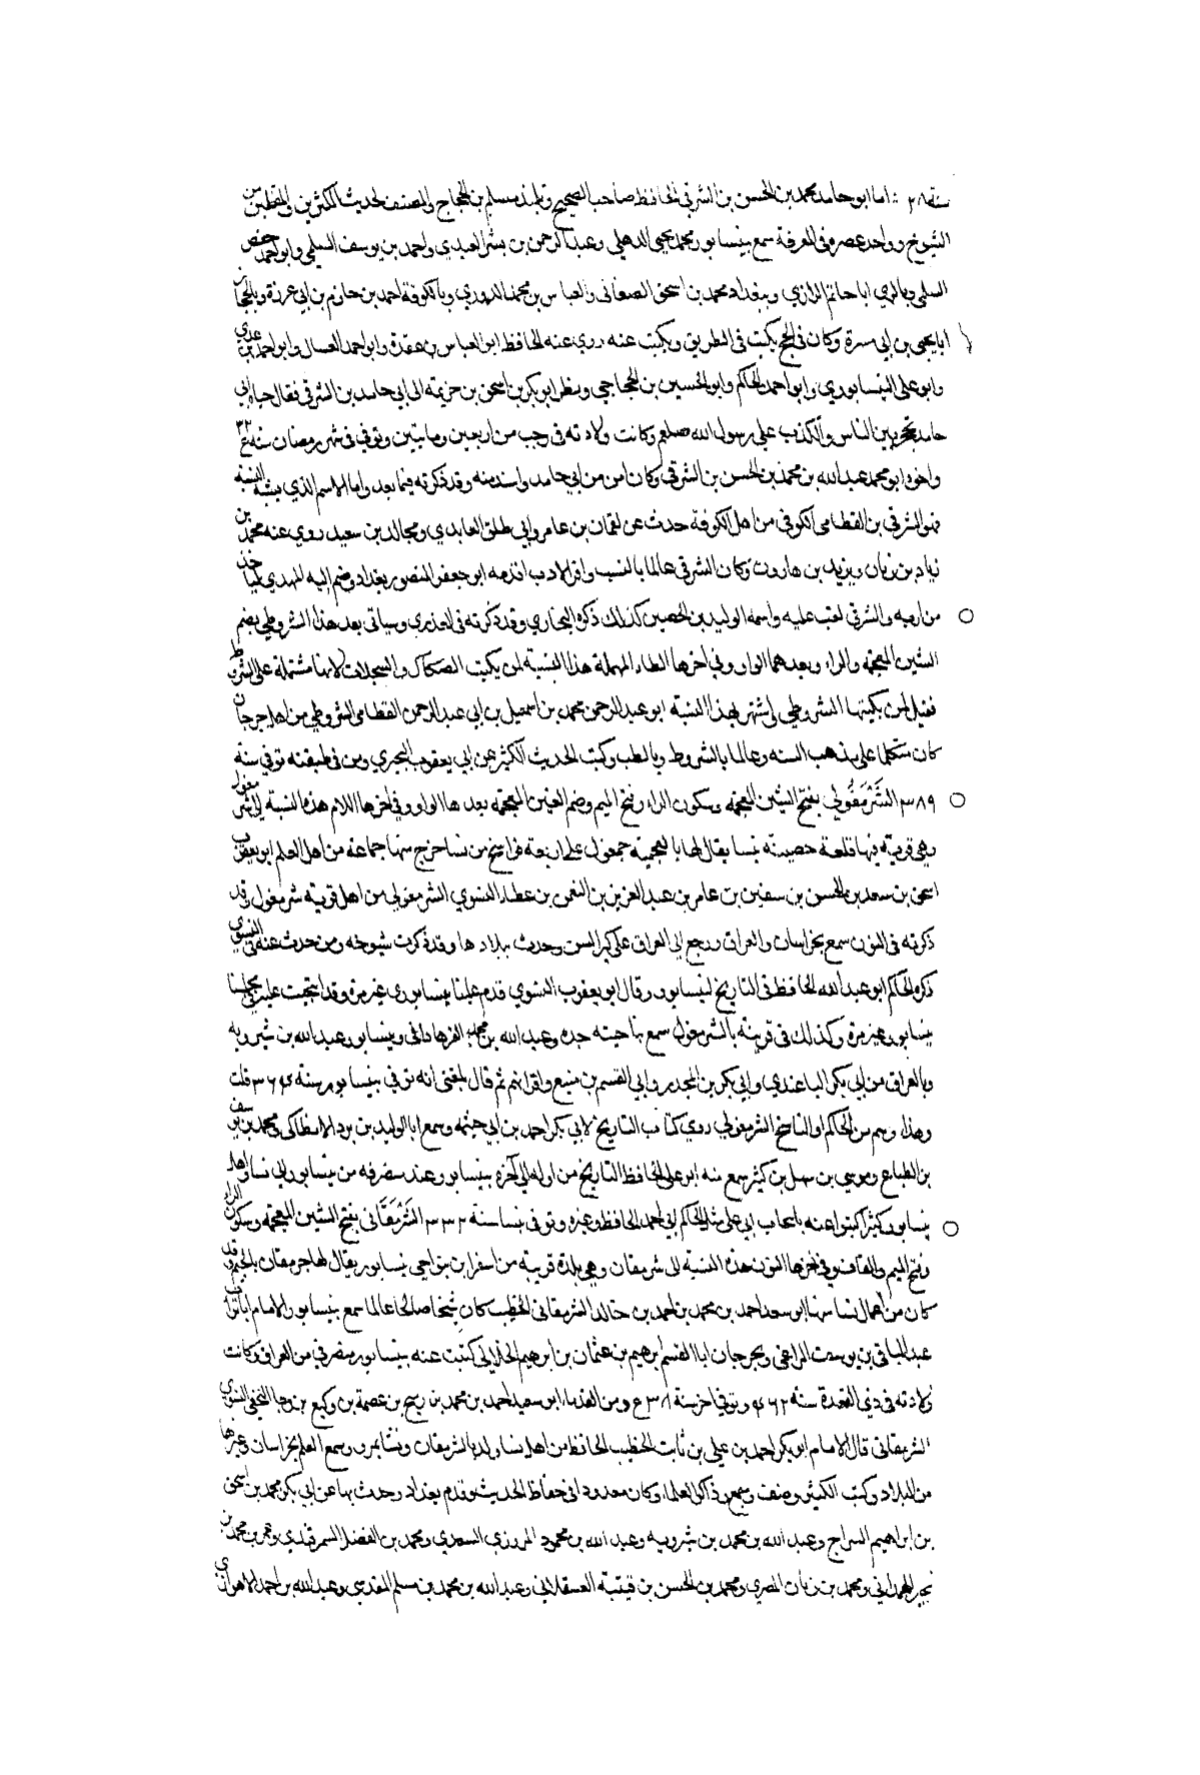 سنة ٣٨ اما ابو حامد محمد بن الحسن بن الشرقي الحافظ صاحب الصحيح وتلميذ مسلم بن الحجاج والمصنف لحديث المكثرين والمقلين من
الشيوخ وواحد عصره في المعرفة سمع بنيسابور محمد يحيى الذهلي وعبد الرحمن بن بشر العبدي واحمد بن يوسف السلمي وابو احمد حفص
السلمي وبالري ابا حاتم الرازي وببغداد محمد بن اسحق الصغاني والعباس بن محمد الدوري وبالكوفة احمد بن حازم بن ابي غرزة وبالحجاز
ابا يحيى بن ابي مسرة وكان في الحج يكتب في الطريق ويكتب عنه روي عنه الحافظ ابو العباس بن عقدة وابو احمد العسال وابو احمد بن عدي
وابو علي النيسابوري وابو احمد الحاكم وابو الحسين بن الحجاجي ونظر ابو بكر بن اسحق بن خزيمه الى ابي حامد بن الشرقي فقال حياة ابي
حامد تحجز بين الناس والكذب على رسول الله صلعم وكانت ولادته في رجب من اربعين ومايتين وتوفي في شهر رمضان سنة
واخوه ابو محمد عبد الله بن محمد بن الحسن بن الشرقي وكان اسن من ابي حامد واسند منه وقد ذكرته فيما بعد واما الاسم الذي يشبه النسبة
فهو الشرقي بن القطامي الكوفي من اهل الكوفة حدث عن لقمان بن عامر وابي طلق العابدي ومجالد بن سعيد روي عنه محمد بن
زياد بن زبان ويزيد بن هارون وكان الشرقي عالما بالنسب وافر الادب اقدمه ابو جعفر المنصور بغداد وضم اليه المهدي لياخذ
من ادبه والشرقي لقب عليه واسمه الوليد بن الحصين كذلك ذكره البخاري وقد ذكرته في العذري وسياتي بعد هذا الشروطي بضم
الشين المعجمة والراء وبعدهما الواو وفي اخرها الطاء المهملة هذا النسبة لمن يكتب الصكاك والسجلات لانها مشتملة على الشروط
فقيل لمن يكتبها الشروطي واشتهر بهذا النسبة ابو عبد الرحمن محمد بن اسمعيل بن ابي عبد الرحمن القطامي الشروطي من اهل جرجان
كان متكلما على مذهب السنه وعالما بالشروط وبالطب وكتب الحديث الكثير عن ابي يعقوب البحيري ومن في طبقته توفي سنة
٣٨٩ الشَّرْمَغُولي بفتح الشين المعجمة وسكون الراء وفتح الميم وضم الغين المعجمة بعدها الواو وفي اخرها اللام هذه النسبة الى شرمغول
وهي قرية فيها قلعة حصينة بنسا يقال لها بالعجمية جمغول على اربعة فراسخ من نسا خرج منها جماعة من اهل العلم ابو يعقوب
اسحق بن سعد بن الحسن بن سفين بن عامر بن عبد العزيز بن النعمن بن عطاء النسوي الشرمغولي من اهل قرية شرمغول وقد
ذكرته في النون سمع بخراسان والعراق ورجع الى العراق على كبر السن وحدث ببلادها وقد ذكرت شيوخه ومن حدث عنه في النسوي
ذكره الحاكم ابو عبد الله الحافظ في التاريخ لنيسابور وقال ابو يعقوب النسوي قدم علينا نيسابوري غير مرة وقد انتخبت عليه في مجلسنا
بنيسابور غير مرة وكذلك في قريته بالشرمغول سمع بناحيته جده وعبد الله بن محمد الفرهاداني وبنيسابور عبد الله بن شيرويه
وبالعراق من ابي بكر الباغندي وابي بكر بن المجدر وابي القسم بن منيع واقرانهم ثم قال بلغني انه توفي بنيسابور سنة ٣٦٤ قلت
وهذا وهم من الحاكم او الناسخ الشرمغولي روي كتاب التاريخ لابي بكر احمد بن ابي خيثمة وسمع ابا الوليد بن برد الانطاكي ومحمد بن يوسف
بن الطباع وموسى بن سهل بن كثير سمع منه ابو علي الحافظ التاريخ من اوله الى آخره بنيسابور وعند منصرفه من نيسابور الى نسا واهل
نيسابور كثيرا كتبوا عنه باتحاب ابي علي مثل الحاكم ابي احمد الحافظ وغيره وتوفي بنسا سنة ٣٣٢ الشَّرْمَقَاني بفتح الشين المعجمة وسكون الراء
وفتح الميم والقاف وفي اخرها النون هذه النسبة الى شرمقان وهي بلدة قريبة من اسفراين بنواحي نيسابور يقال لها جرمقان بالجيم وقد
كان من اعمال نسا منها ابو سعد احمد بن محمد بن احمد بن خالد الشرمقاني الخطيب كان شيخا صالحا عالما سمع بنيسابور الامام ابا تراب
عبد الباقي بن يوسف المراغي وبجرجان ابا القسم ابرهيم بن عثمان بن ابرهيم الخلالي كتبت عنه بنيسابور منصرفي من العراق وكانت
ولادته في ذي القعدة سنة ٤٦٢ وتوفي اخر سنة ٥٣٨ ومن القدماء ابو سعيد احمد بن محمد بن ربيح بن عصمة بن وكيع بن رجا النخعي النسوي
الشرمقاني قال الامام ابو بكر احمد بن علي بن ثابت الخطيب الحافظ من اهل نسا ولد بالشرمقان ونشا بمرو وسمع العلم بخراسان وغيرها
من البلاد وكتب الكثير وصنف وجمع وذاكر العلماء وكان معدودا في حفاظ الحديث وقدم بغداد وحدث بها عن ابي بكر محمد بن اسحق
بن ابراهيم السراج وعبد الله بن محمد بن شيرويه وعبد الله بن محمود المروزي السعدي ومحمد بن الفضل السمرقندي وعمر بن محمد بن
بجير الهمداني ومحمد بن زبان المصري ومحمد بن الحسن بن قتيبة العسقلاني وعبد الله بن محمد بن مسلم المقدسي وعبد الله بن احمد الاهوازي